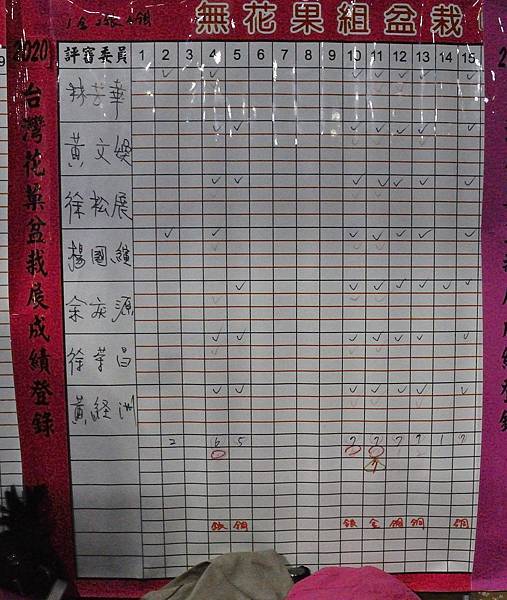 1金 3銀 4銅
無花果組盆栽
2020
台灣花菓盆栽展成績登錄
評審委員 1 2 3 4 5 6 7 8 9 10 11 12 13 14 15
林芸華
黃文煖
徐松展
楊國雄
余炭源
徐榮昌
黃経洲
2 6 5 7 7 7 7 1 7
7
銀 銅 銀 金 銅 銅 銅